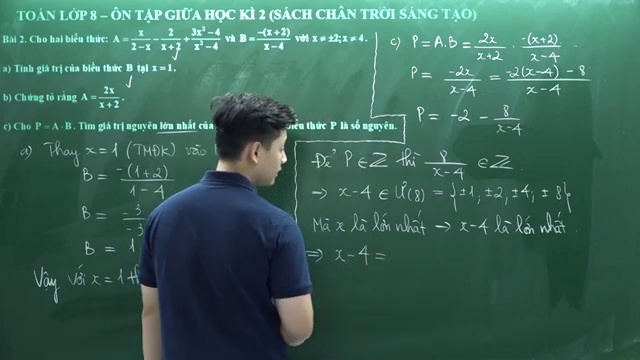 TOÁN LỚP 8 – ÔN TẬP GIỮA HỌC KÌ 2 (SÁCH CHÂN TRỜI SÁNG TẠO)
Bài 2. Cho hai biểu thức: A = x/(2−x) − 2/(x+2) + (3x²−4)/(x²−4) và B = −(x+2)/(x−4) với x ≠ ±2; x ≠ 4.
a) Tính giá trị của biểu thức B tại x = 1.
b) Chứng tỏ rằng A = 2x/(x+2).
c) Cho P = A · B. Tìm giá trị nguyên lớn nhất của thức P là số nguyên.
a) Thay x = 1 (TMĐK) vào
B = −(1+2)/(1−4)
B = −3/−3
B = 1
Vậy với x = 1 th
c) P = A.B = 2x/(x+2) . −(x+2)/(x−4)
P = −2x/(x−4) = (−2(x−4) − 8)/(x−4)
P = −2 − 8/(x−4)
Để P ∈ Z thì 8/(x−4) ∈ Z
→ x−4 ∈ Ư(8) = {±1; ±2; ±4; ±8}
Mà x là lớn nhất → x−4 là lớn nhất.
⇒ x−4 =